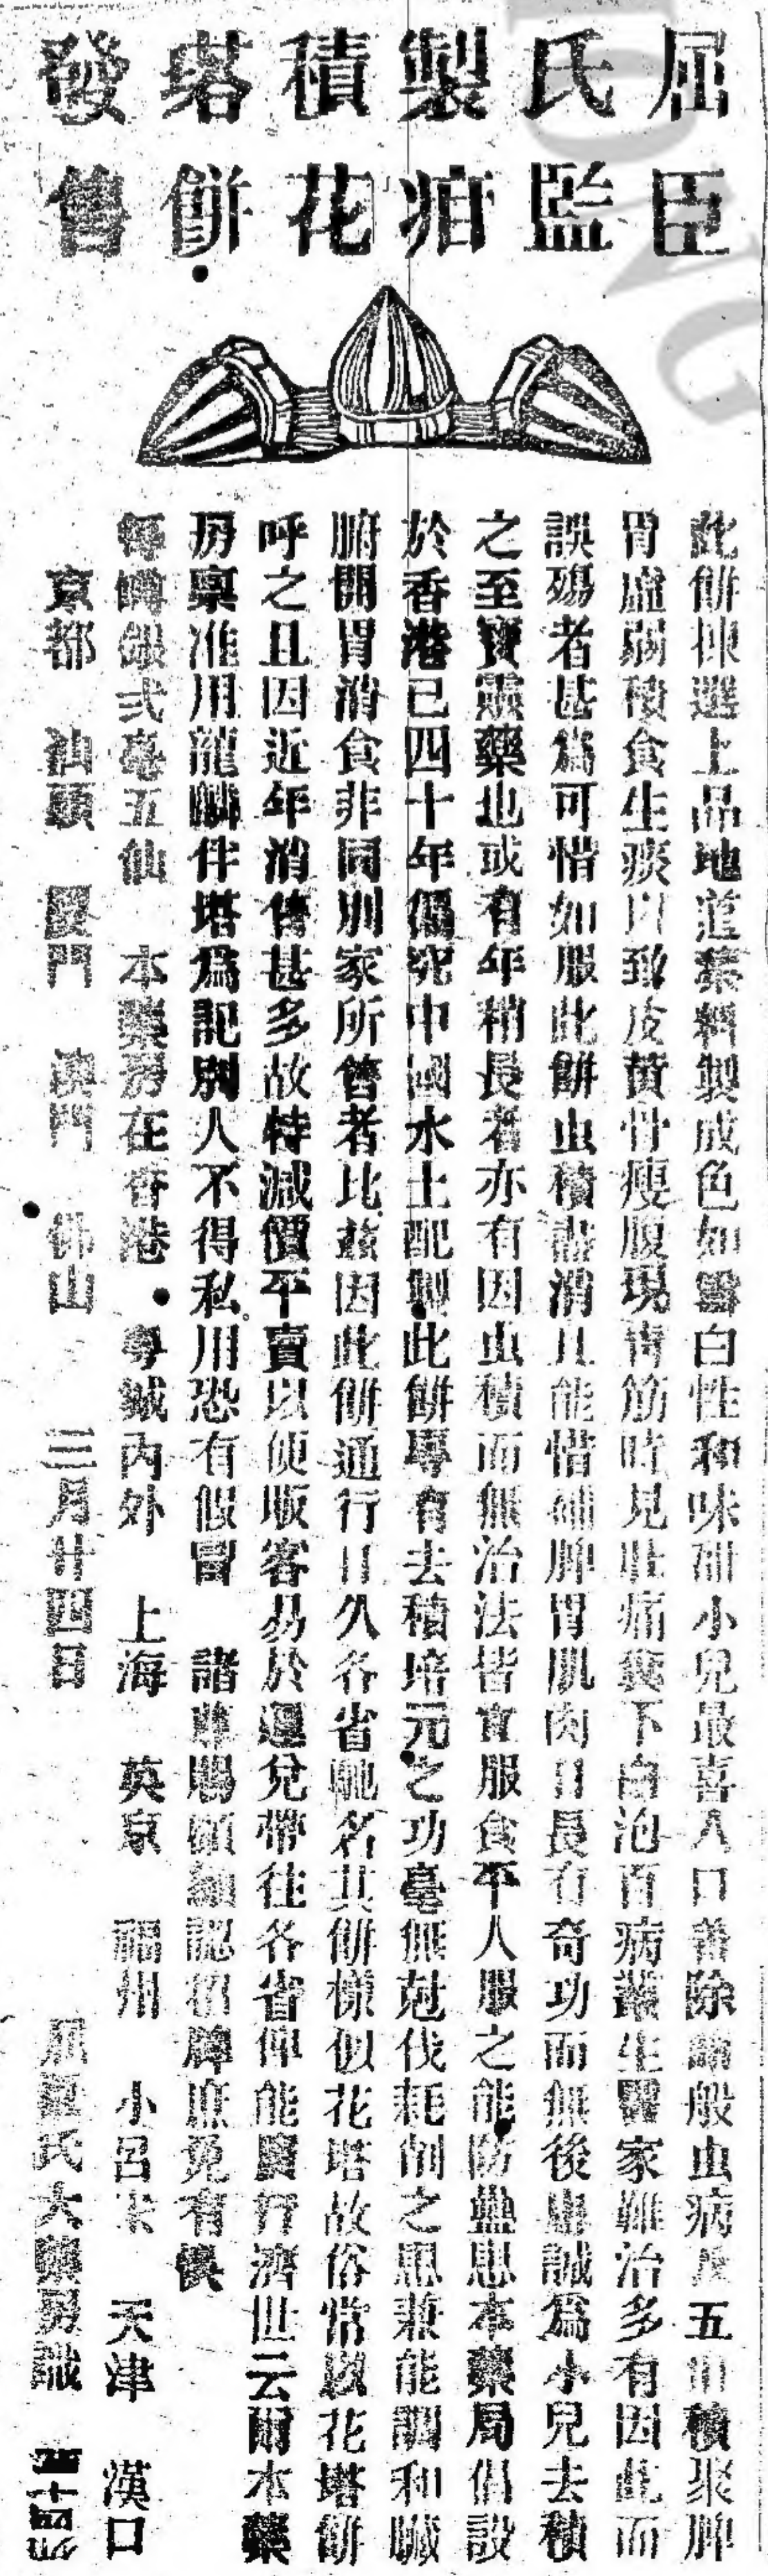 屈臣
氏監
製疳
積花
塔餅
發售
此餅揀選上品地道藥料製成色如雪白性和味甜小兒最喜入口善除諸般虫病及五疳積聚脾
胃虛弱積食生痰以致皮黃骨瘦腹現青筋時見肚痛糞下白泡百病叢生醫家難治多有因此而
誤殤者甚為可惜如服此餅虫積盡消且能借補脾胃肌肉日長有奇功而無後患誠為小兒去積
之至寶靈藥也或有年稍長者亦有因虫積而無治法皆宜服食平人服之能防蠱患本藥局倡設
於香港已四十年備究中國水土配製此餅專有去積培元之功毫無尅伐耗削之患兼能調和臟
腑開胃消食非同別家所售者比茲因此餅通行日久各省馳名其餅樣似花塔故俗常以花塔餅
呼之且因近年消售甚多故特減價平賣以便販客易於運兌帶往各省俾能廣行濟世云爾本藥
房稟准用龍麟伴塔為記別人不得私用恐有假冒 諸尊賜顧細認招牌庶免有悞
每罇銀弍毫五仙 本藥房在香港 粵城內外 上海 英京 福州 小呂宋 天津 漢口
京都 汕頭 廈門 澳門 佛山 三月廿四日 屈臣氏大藥房識
NONG